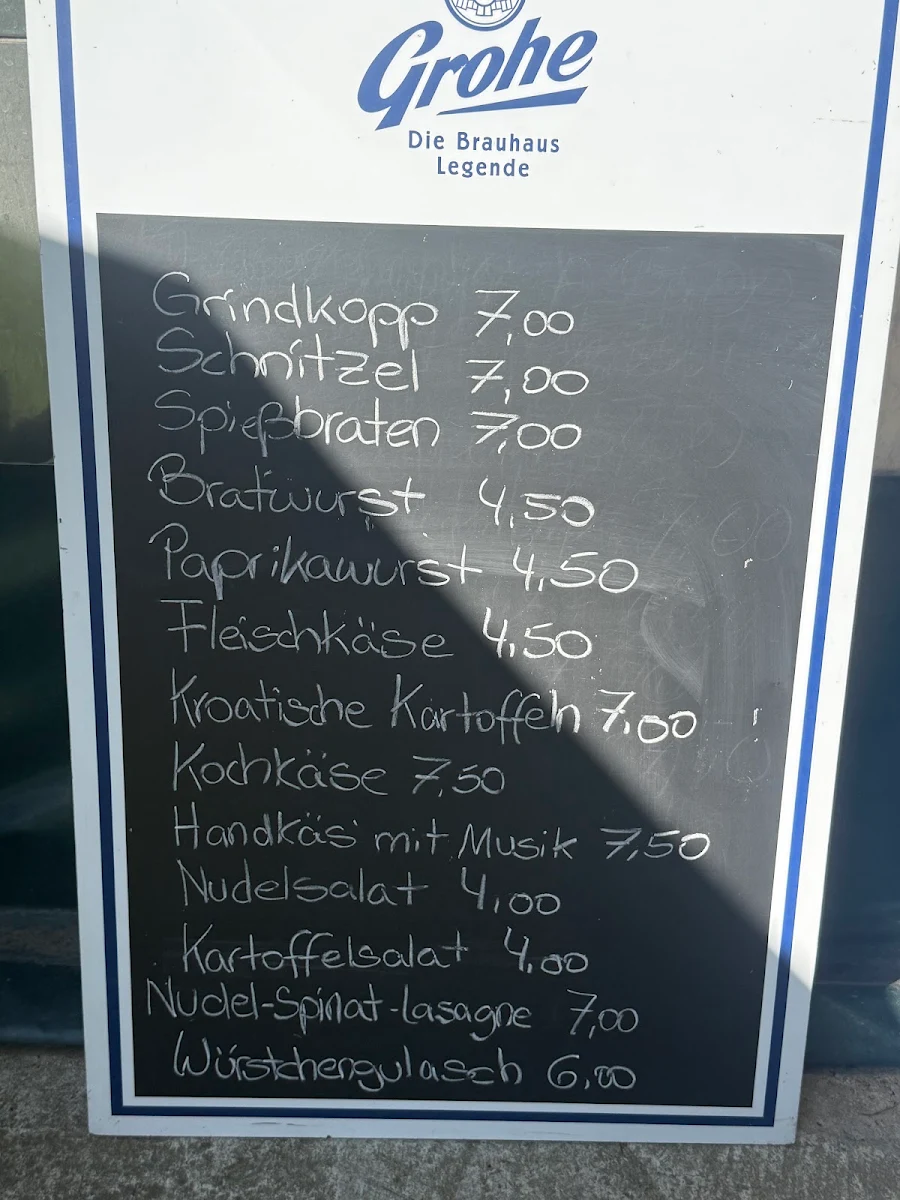 Grohe
Die Brauhaus
Legende
Grindkopp 7,00
Schnitzel 7,00
Spießbraten 7,00
Bratwurst 4,50
Paprikawurst 4,50
Fleischkäse 4,50
Kroatische Kartoffeln 7,00
Kochkäse 7,50
Handkäs' mit Musik 7,50
Nudelsalat 4,00
Kartoffelsalat 4,00
Nudel-Spinat-Lasagne 7,00
Würstchengulasch 6,00